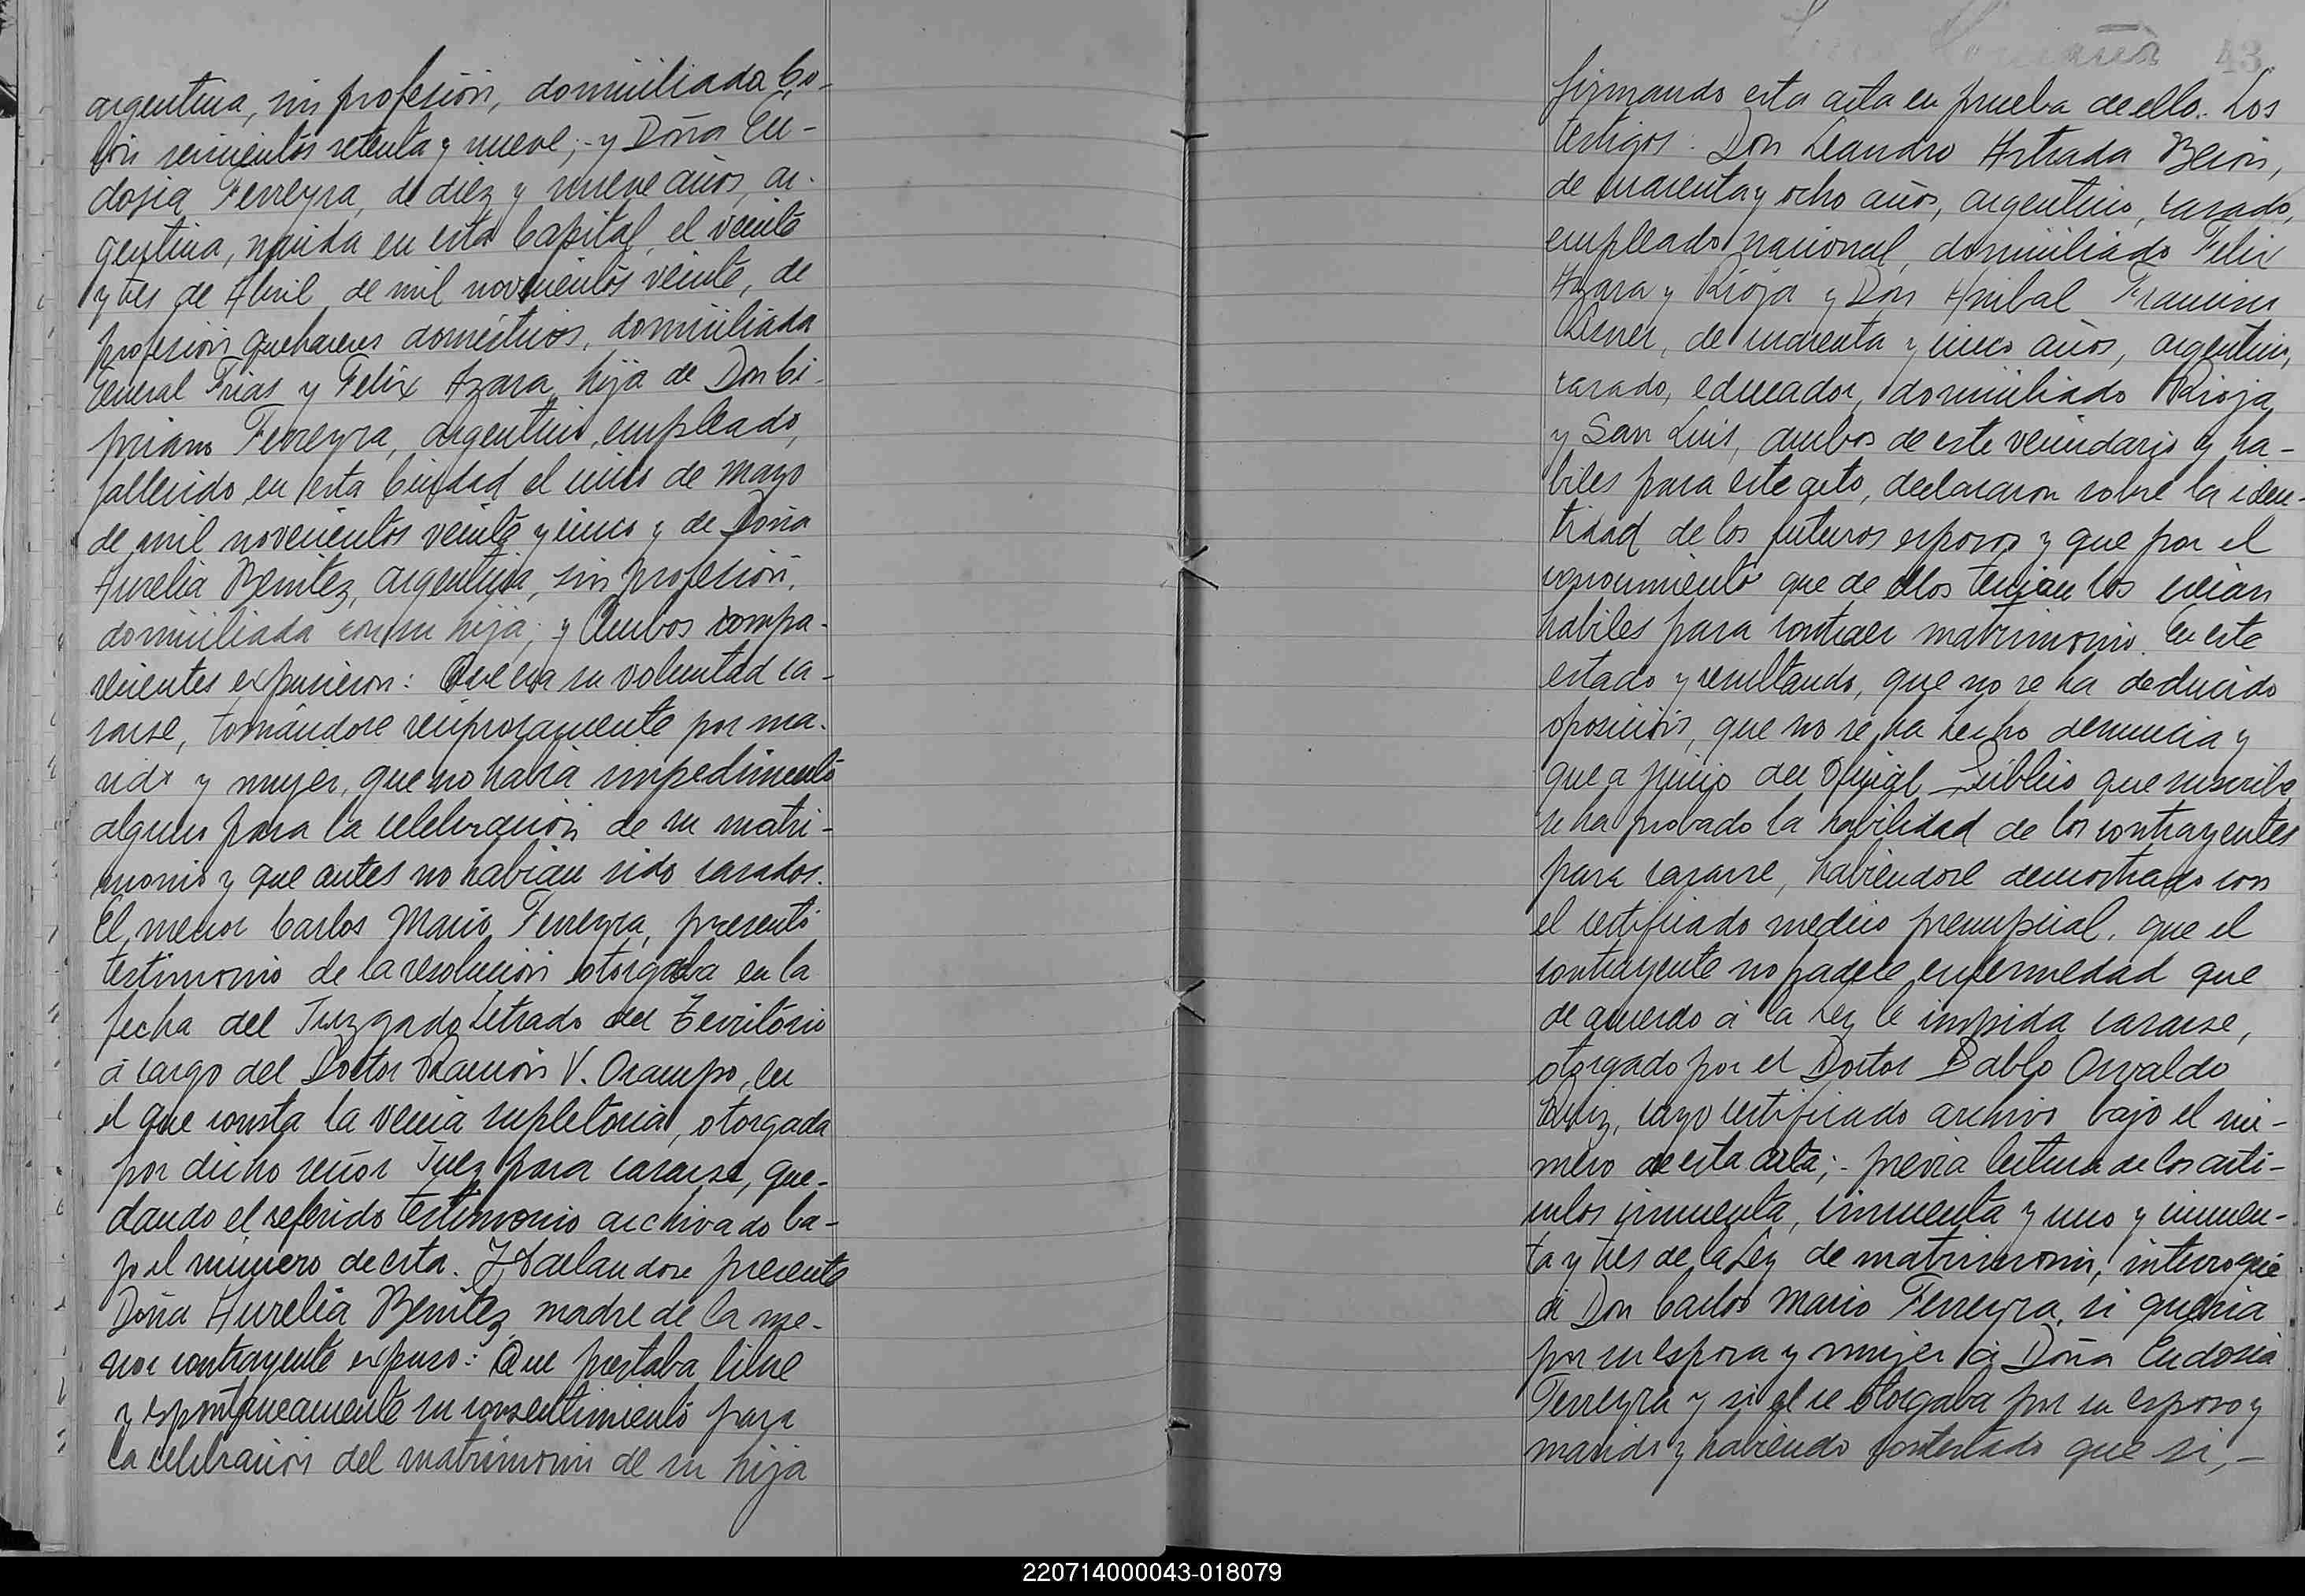 argentina, sin profesión, domiciliada Co-
lón seiscientos setenta y nueve; y Doña Eu-
dosia Ferreyra, de diez y nueve años, ar-
gentina, nacida en esta Capital, el veinte
y tres de Abril de mil novecientos veinte, de
profesión quehaceres domésticos, domiciliada
General Frias y Felix Azara, hija de Don Ci-
priano Ferreyra, argentino, empleado,
fallecido en esta Ciudad el cinco de mayo
de mil novecientos veinte y cinco y de Doña
Aurelia Benitez, argentina, sin profesión,
domiciliada con su hija; y Ambos compa-
recientes expusieron: Que era su voluntad ca-
sarse, tomándose reciprocamente por ma-
rido y mujer, que no habia impedimento
alguno para la celebración de su matri-
monio y que antes no habian sido casados.
El menor Carlos Mario Ferreyra, presentó
testimonio de la resolución otorgada en la
fecha del Juzgado Letrado del Territorio
á cargo del Doctor Ramón V. Ocampo, en
el que consta la venia supletoria, otorgada
por dicho señor Juez para casarse, que-
dando el referido testimonio archivado ba-
jo el número de esta. Hallandose presente
Doña Aurelia Benitez madre de la me-
nor contrayente expuso: Que prestaba libre
y espontaneamente su consentimiento para
la celebración del matrimonio de su hija
43
firmando esta acta en prueba de ello. Los
testigos: Don Leandro Astrada
de cuarenta y ocho años, argentino, casado,
empleado nacional, domiciliado Felix
Azara y Rioja y Don Anibal Francisco
de cuarenta y cinco años, argentino,
casado, educador, domiciliado Rioja
y San Luis, ambos de este vecindario y ha-
biles para este acto, declararon sobre la iden-
tidad de los futuros esposos y que por el
conocimiento que de ellos tenian los creian
habiles para contraer matrimonio. En este
estado y resultando, que no se ha deducido
oposición, que no se ha hecho denuncia y
que a juicio del Oficial Público que suscribe
se ha probado la habilidad de los contrayentes
para casarse, habiendose demostrado con
el certificado medico prenupcial, que el
contrayente no padece enfermedad que
de acuerdo á la Ley le impida casarse,
otorgado por el Doctor Pablo Osvaldo
Ruiz, cuyo certificado archivo bajo el nú-
mero de esta acta;- previa lectura de los arti-
culos cincuenta, cincuenta y uno y cincuen-
ta y tres de la Ley de matrimonio, interrogué
á Don Carlos Mario Ferreyra, si queria
por su esposa y mujer á Doña Eudosia
Ferreyra y si él se otorgaba por su esposo y
marido y habiendo contestado que si,-
220714000043-018079